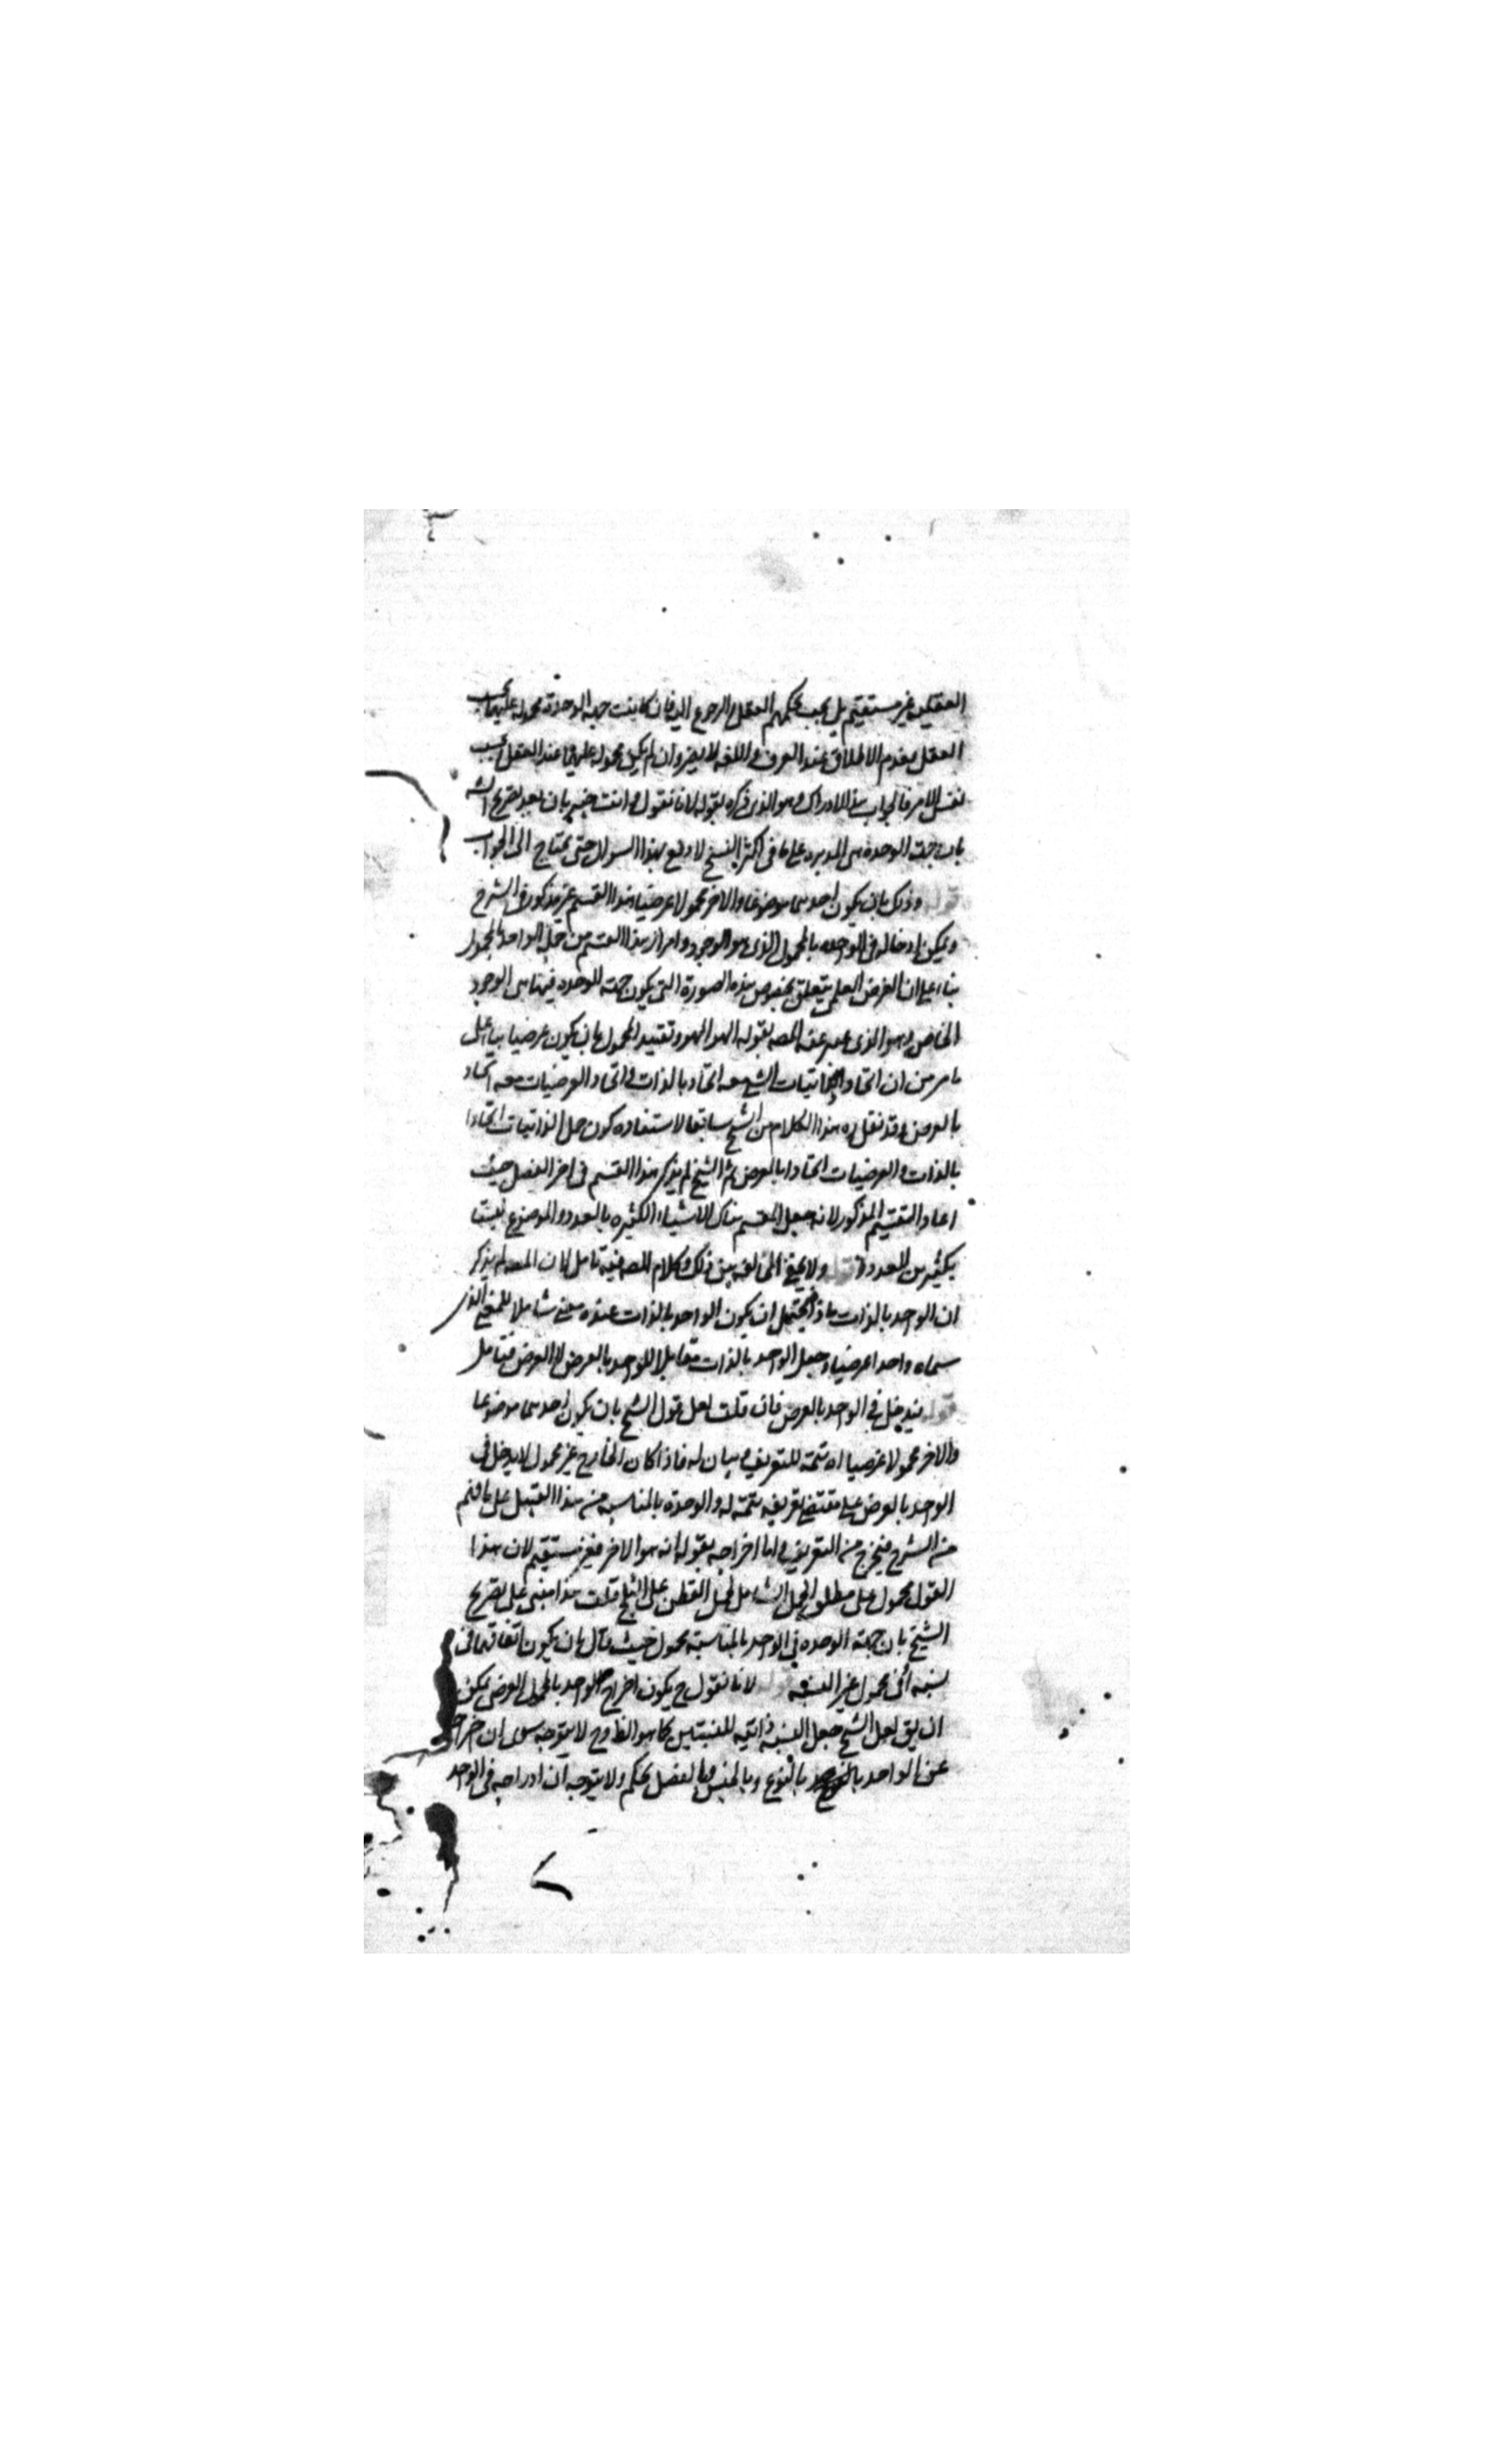 العقليه غير مستقيم بل يجب بحكمهم العقل والرجوع اليه فان كانت جهة الوحدة محموله عليهما بحسب
العقل فعدم الاطلاق عند العرف واللغه لا يضر وان لم يكن محموله عليهما عند العقل بحسب
نفس الامر فالجواب هذا الادراك وهو الذي ذكره بقوله لانا نقول وانت خبير بان بعد تصريح الش
بان جهة الوحده هي المدبره على ما في اكثر النسخ لا وقع لهذا السوال حتى يحتاج الى الجواب
قوله وذلك بان يكون احدهما موضوعا والاخر محمولا عرضيا هذا القسم غير مذكور في الشرح
ويمكن ادخاله في الواحد بالمحمول الذي هو الوجود وافراز هذا القسم من جملة الواحد بالمحمول
بناء على ان الغرض العلمي يتعلق بخصوص هذه الصورة التي يكون جهة الوحده فيها هي الوجود
الخاص وهو الذي عبر عنه المصه بقوله الهو الهو وتقييد المحمول بان يكون عرضيا بناء على
ما مر من ان اتحاد الذاتيات الشي معه اتحاد بالذات واتحاد العرضيات معه اتحاد
بالعرض وقد نقل ره هذا الكلام من الشيخ سابقا لاستفاده كون حمل الذاتيات اتحادا
بالذات والعرضيات اتحادا بالعرض ثم الشيخ لم يذكر هذا القسم في اخر الفصل حيث
اعاد التقسيم المذكور لانه جعل المقسم هناك الاشياء الكثيره بالعدد والموضوع ليست
بكثير من العدد قوله ولا يخفى المخالفه بين ذلك وكلام المصه فيه تامل لان المصه لم يذكر
ان الواحد بالذات ماذا فيحتمل ان يكون الواحد بالذات عنده معنى شاملا للمعنى الذي
سماه واحدا عرضيا وجعل الواحد بالذات مقابلا للواحد بالعرض لا العرض فتامل
قوله فيدخل في الواحد بالعرض فان قلت لعل قول الشيخ بان يكون احدهما موضوعا
والاخر محمولا عرضيا اه تتمة للتعريف وبيان له فاذا كان الخارج غير محمول لا يدخل في
الواحد بالعرض على مقتضى تعريفه تتمته له والوحدة بالمناسبه من هذا القبيل على ما فهم
من الشرح فيخرج من التعريف واما اخراجه بقوله انه هو الاخر فغير مستقيم لان هذا
القول محمول على مطلق الحمل الشامل لحمل القطن على الثلج قلت هذا مبني على تصريح
الشيخ بان جهة الوحده في الواحد بالمناسبة محمول حيث قال بان يكون اتفاقهما في
نسبه أي محمول غير النسبه قوله لانا نقول ح يكون اخراج الواحد بالمحمول العرضي يمكن
ان يق لعل الشيخ جعل النسبه ذاتيه للنسبتين كما هو الظ وح لا يتوجه سوى ان اخراجه
عن الواحد بالنوع وبالجنس وبالفصل تحكم ولا يتوجه ان ادراجه في الواحد